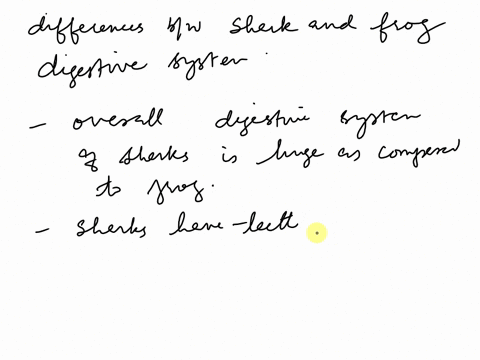 differences b/w Shark and frog
digestive system.
- overall digestive system
of sharks is huge as compared
to frog.
- Sharks have teeth